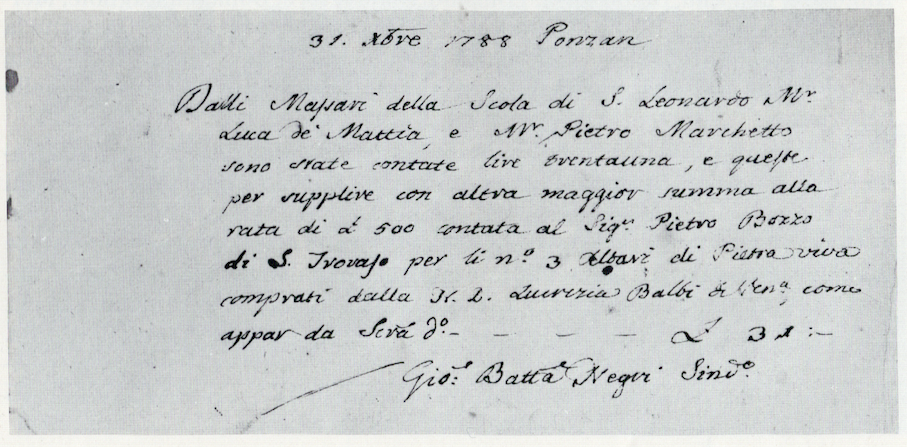 31. Xbre 1788 Ponzan
Dalli Massari della Scola di S. Leonardo Mr.
Luca de Mattia, e Mr. Pietro Marchetto
sono state contate lire trentauna, e queste
per supplire con altra maggior summa alla
rata di d 500 contata al Sigr. Pietro Bozzo
di S. Trovaso per li n.o 3 Altari di Pietra viva
comprati dalla N. D. Lucrizia Balbi di Vena. come
appar da Scra. do. - - - - - L 31:-
Gio: Batta. Negri Sindo.